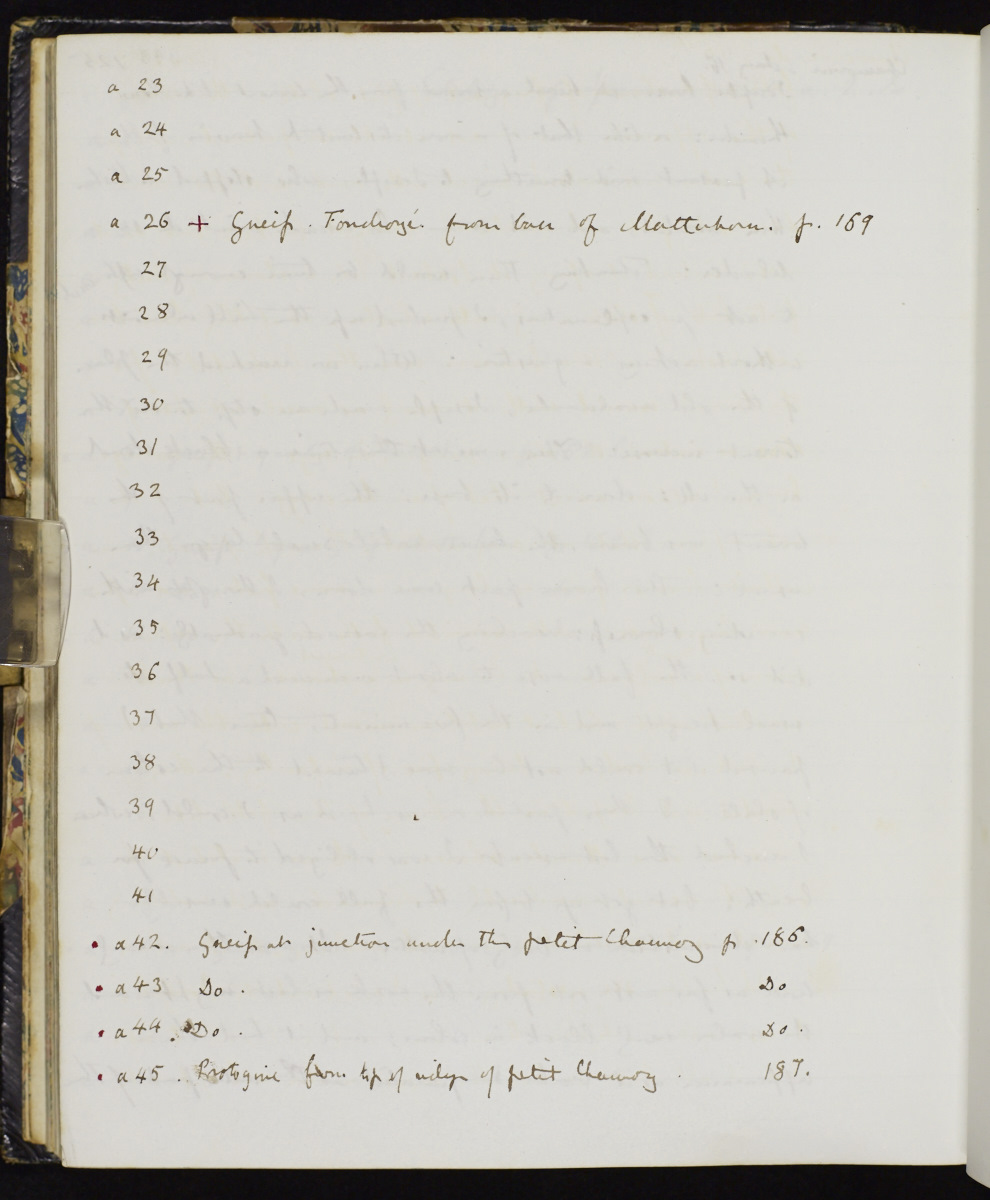 a 23
a 24
a 25
a 26 + Gneiss. from base of Matterhorn. p. 169
27
28
29
30
31
32
33
34
35
36
37
38
39
40
41
a 42. Gneiss at junction under the petit Charmoz p. 186.
a 43 Do. Do
a 44. Do. Do.
a 45. Protogine from top of ridge of petit Charmoz. 187.